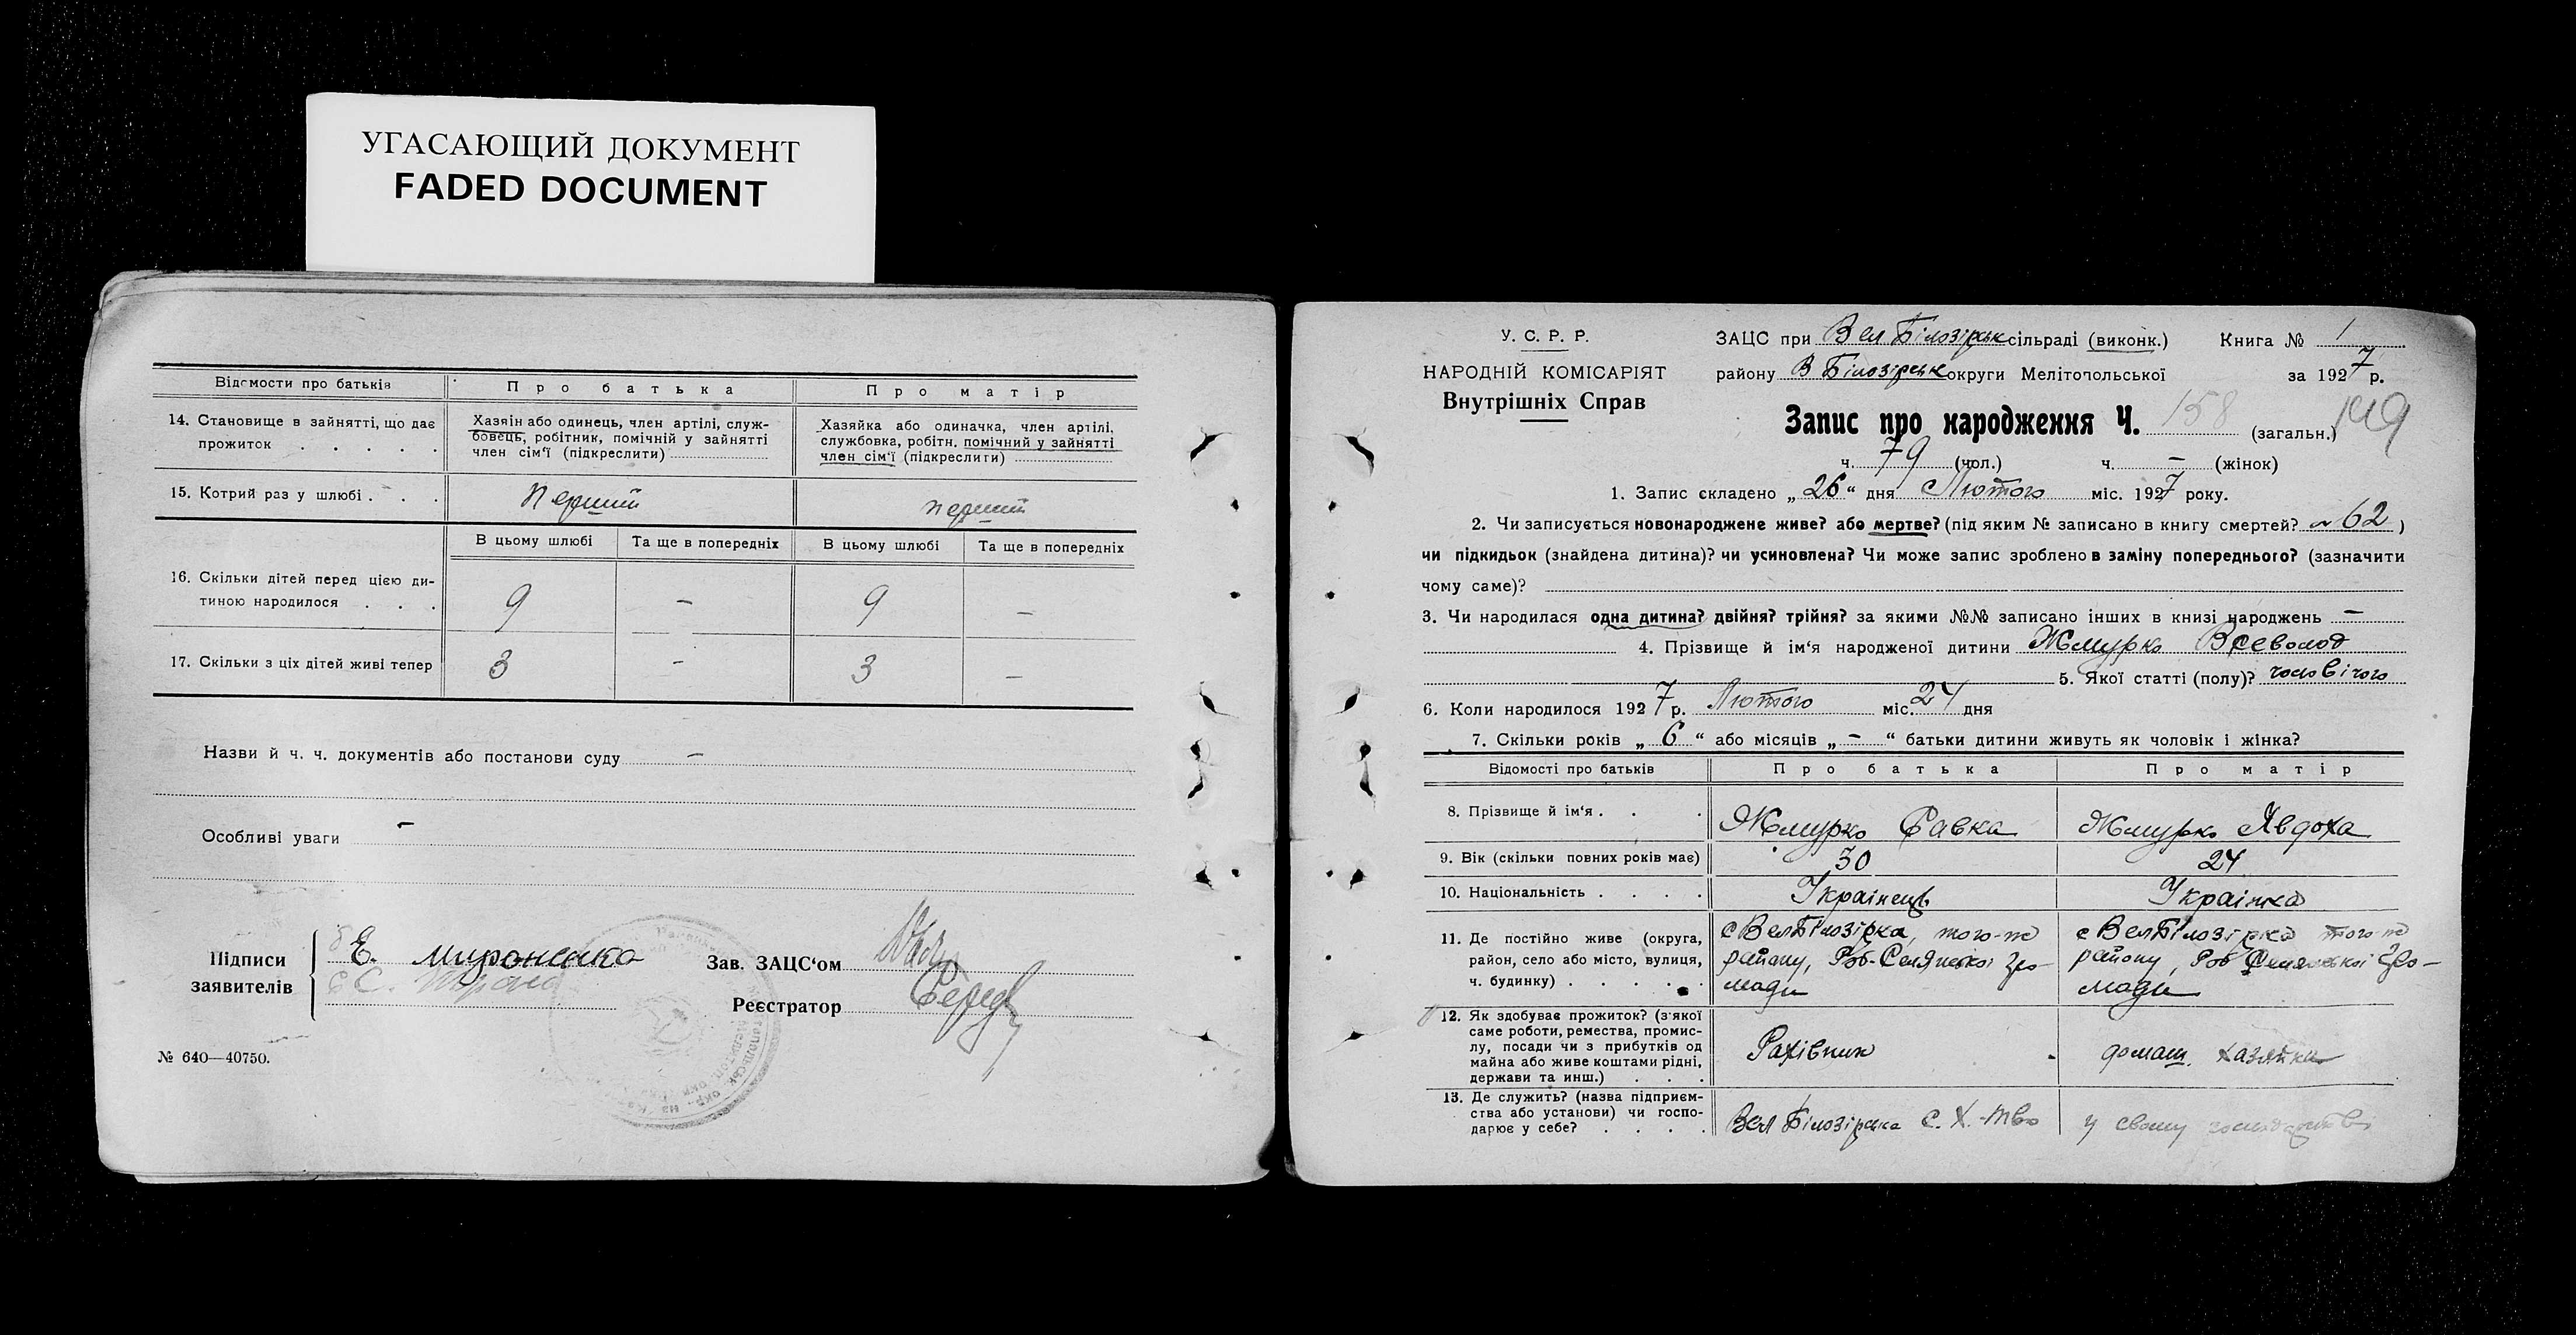 УГАСАЮЩИЙ ДОКУМЕНТ
FADED DOCUMENT
Відомости про батьків
Про батька
Про матір
14. Становище в зайнятті, що дає прожиток . . . . .
Хазяін або одинець, член артілі, служ-
бовець, робітник, помічній у зайнятті
член сім'ї (підкреслити)
Хазяйка або одиначка, член артілі,
службовка, робітн. помічний у зайнятті
член сім'ї (підкреслити)
15. Котрий раз у шлюбі . . .
перший
перший
В цьому шлюбі
Та ще в попередніх
В цьому шлюбі
Та ще в попередніх
16. Скільки дітей перед цією ди-
тиною народилося . . .
9
–
9
–
17. Скільки з ціх дітей живі тепер
3
-
3
–
Назви й ч. ч. документів або постанови суду –
Особливі уваги –
Підписи
заявителів
Е. мироненко
Зав. ЗАЦС'ом
Реєстратор
№ 640—40750.
У. С. Р. Р.
НАРОДНІЙ КОМІСАРІЯТ
Внутрішніх Справ
ЗАЦС при Вел Білозірськ сільраді (виконк.)
Книга № 1
району В Білозірськ округи Мелітопольської
за 1927 р.
Запис про народження Ч. 158 (загальн.) 149
ч. 79 (чол.) ч. – (жінок)
1. Запис складено „26“ дня Лютого міс. 1927 року.
2. Чи записується новонароджене живе? або мертве? (під яким № записано в книгу смертей? ~ 62 )
чи підкидьок (знайдена дитина)? чи усиновлена? Чи може запис зроблено в заміну попереднього? (зазначити
чому саме)?
3. Чи народилася одна дитина? двійня? трійня? за якими №№ записано інших в книзі народжень –
4. Прізвище й ім'я народженої дитини Жмурко Всеволод
5. Якої статті (полу)? чоловічого
6. Коли народилося 1927 р. Лютого міс. 24 дня
7. Скільки років „6“ або місяців „–“ батьки дитини живуть як чоловік і жінка?
Відомості про батьків
Про батька
Про матір
8. Прізвище й ім'я . . .
Жмурко Савка
Жмурко Явдоха
9. Вік (скільки повних років має)
30
24
10. Національність . . . .
Українець
Українка
11. Де постійно живе (округа,
район, село або місто, вулиця,
ч. будинку) . . . . .
с ВелБілозірка, того-ж
району, Роб-Селянської гро-
мади
с ВелБілозірка того-ж
району, Роб Селянської гро-
мади
12. Як здобуває прожиток? (з якої
саме роботи, ремества, промис-
лу, посади чи з прибутків од
майна або живе коштами рідні,
держави та инш.) . . .
Рахівник
домаш. хазяйка
13. Де служить? (назва підприєм-
ства або установи) чи госпо-
дарює у себе? . . . .
Вел Білозірська С. Х. Т-во
у свому господарстві